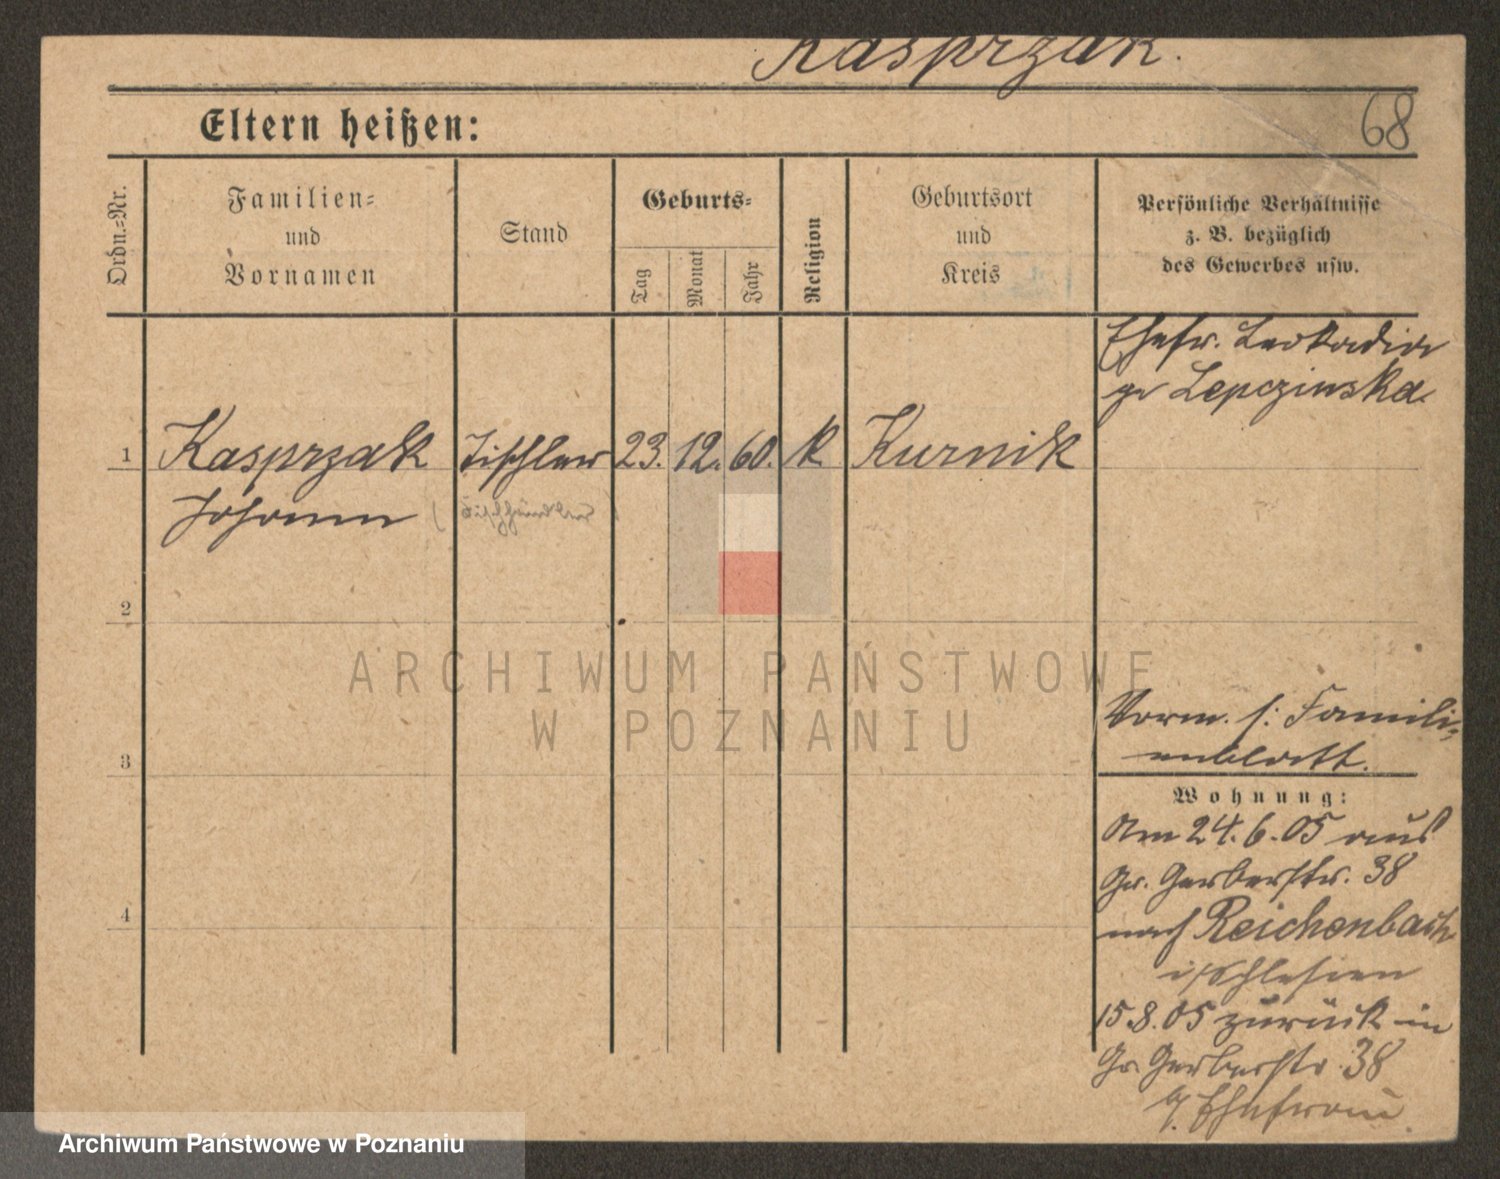 Kasprzak.
68
Eltern heißen:
Ordn.-Nr.
Familien-
und
Vornamen
Stand
Geburts-
Tag
Monat
Jahr
Religion
Geburtsort
und
Kreis
Persönliche Verhältnisse
z. B. bezüglich
des Gewerbes usw.
Ehefr. Leokadia
ge Lepczinska
1 Kasprzak Tischler 23. 12. 60. k Kurnik
Johann
2
Vorm. s: Famili-
enblatt.
3
Wohnung:
Am 24.6.05 aus
Gr. Gerberstr. 38
4
nach Reichenbach
i/Schlesien
15.8.05 zurück in
Gr. Gerberstr. 38
b/ Ehefrau
ARCHIWUM PAŃSTWOWE
W POZNANIU
Archiwum Państwowe w Poznaniu